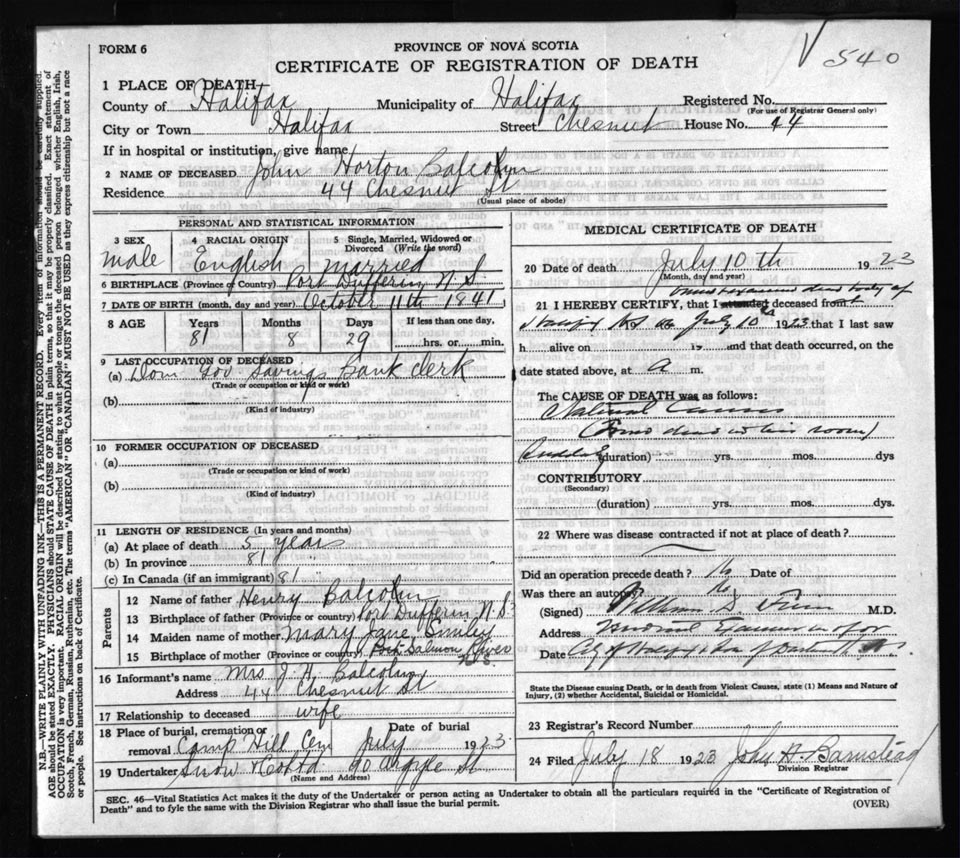 FORM 6
PROVINCE OF NOVA SCOTIA
CERTIFICATE OF REGISTRATION OF DEATH
√ 540
1 PLACE OF DEATH
County of Halifax Municipality of Halifax Registered No.
(For use of Registrar General only)
City or Town Halifax Street Chesnut House No. 44
If in hospital or institution, give name
2 NAME OF DECEASED John Horton Balcolm
Residence 44 Chesnut St
(Usual place of abode)
PERSONAL AND STATISTICAL INFORMATION
3 SEX 4 RACIAL ORIGIN 5 Single, Married, Widowed or Divorced (Write the word)
male English married
6 BIRTHPLACE (Province or Country) Port Dufferin N. S.
7 DATE OF BIRTH (month, day and year) October 11th 1841
8 AGE Years Months Days If less than one day,
81 8 29 hrs. or min.
9 LAST OCCUPATION OF DECEASED
(a) Dom Gov Savings Bank clerk
(Trade or occupation or kind or work)
(b)
(Kind of industry)
10 FORMER OCCUPATION OF DECEASED
(a)
(Trade or occupation or kind of work)
(b)
(Kind of industry)
11 LENGTH OF RESIDENCE (In years and months)
(a) At place of death 5 years
(b) In province 81 "
(c) In Canada (if an immigrant) 81 "
Parents
12 Name of father Henry Balcolm
13 Birthplace of father (Province or country) Port Dufferin N. S
14 Maiden name of mother Mary Jane
15 Birthplace of mother (Province or country) Salmon River N.S.
16 Informant's name Mrs J. H. Balcolm
Address 44 Chesnut St
17 Relationship to deceased wife
18 Place of burial, cremation or removal Camp Hill Cem Date of burial July 1923
19 Undertaker Snow & Co Ltd 90 Argyle St
(Name and Address)
MEDICAL CERTIFICATE OF DEATH
20 Date of death July 10th 1923
(Month, day and year)
dead body of
21 I HEREBY CERTIFY, that I attended deceased from
July 10 1923 that I last saw
h alive on is and that death occurred, on the
date stated above, at a m.
The CAUSE OF DEATH was as follows:
Natural Causes
(Found dead in his room)
Suddenly (duration) yrs. mos. dys
CONTRIBUTORY
(Secondary)
(duration) yrs. mos. dys.
22 Where was disease contracted if not at place of death?
Did an operation precede death? No Date of
Was there an autopsy? No
(Signed) William D. M.D.
Address Medical Examiner for
Date City of Halifax & Town of Dartmouth N.S.
State the Disease causing Death, or in death from Violent Causes, state (1) Means and Nature of
Injury, (2) whether Accidental, Suicidal or Homicidal.
23 Registrar's Record Number
24 Filed July 18 1923 John H. Barnstead
Division Registrar
SEC. 46—Vital Statistics Act makes it the duty of the Undertaker or person acting as Undertaker to obtain all the particulars required in the "Certificate of Registration of
Death" and to fyle the same with the Division Registrar who shall issue the burial permit.
(OVER)
N.B.—WRITE PLAINLY WITH UNFADING INK—THIS IS A PERMANENT RECORD. Every item of information should be carefully supplied.
AGE should be stated EXACTLY. PHYSICIANS should STATE CAUSE OF DEATH in plain terms, so that it may be properly classified. Exact statement of
OCCUPATION is very important. RACIAL ORIGIN will be described by stating to what people or tongue the deceased person belonged whether English, Irish,
Scotch, French, German, Russian, Ruthenian, etc. The terms "AMERICAN" OR "CANADIAN" MUST NOT BE USED as they express citizenship but not a race
or people. See instructions on back of Certificate.